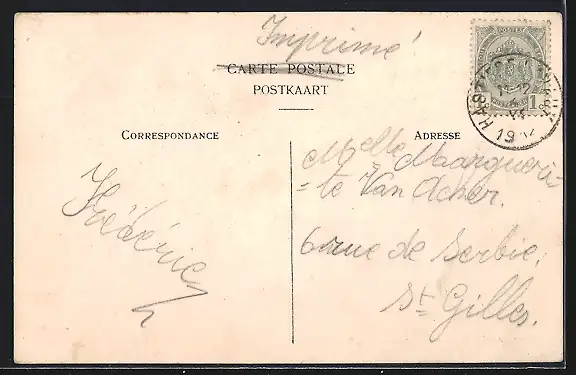 Imprimé
CARTE POSTALE
POSTKAART
CORRESPONDANCE
ADRESSE
Melle Margueri-
-te Van Acker.
6 rue de Serbie.
St Gilles.
Frédéric